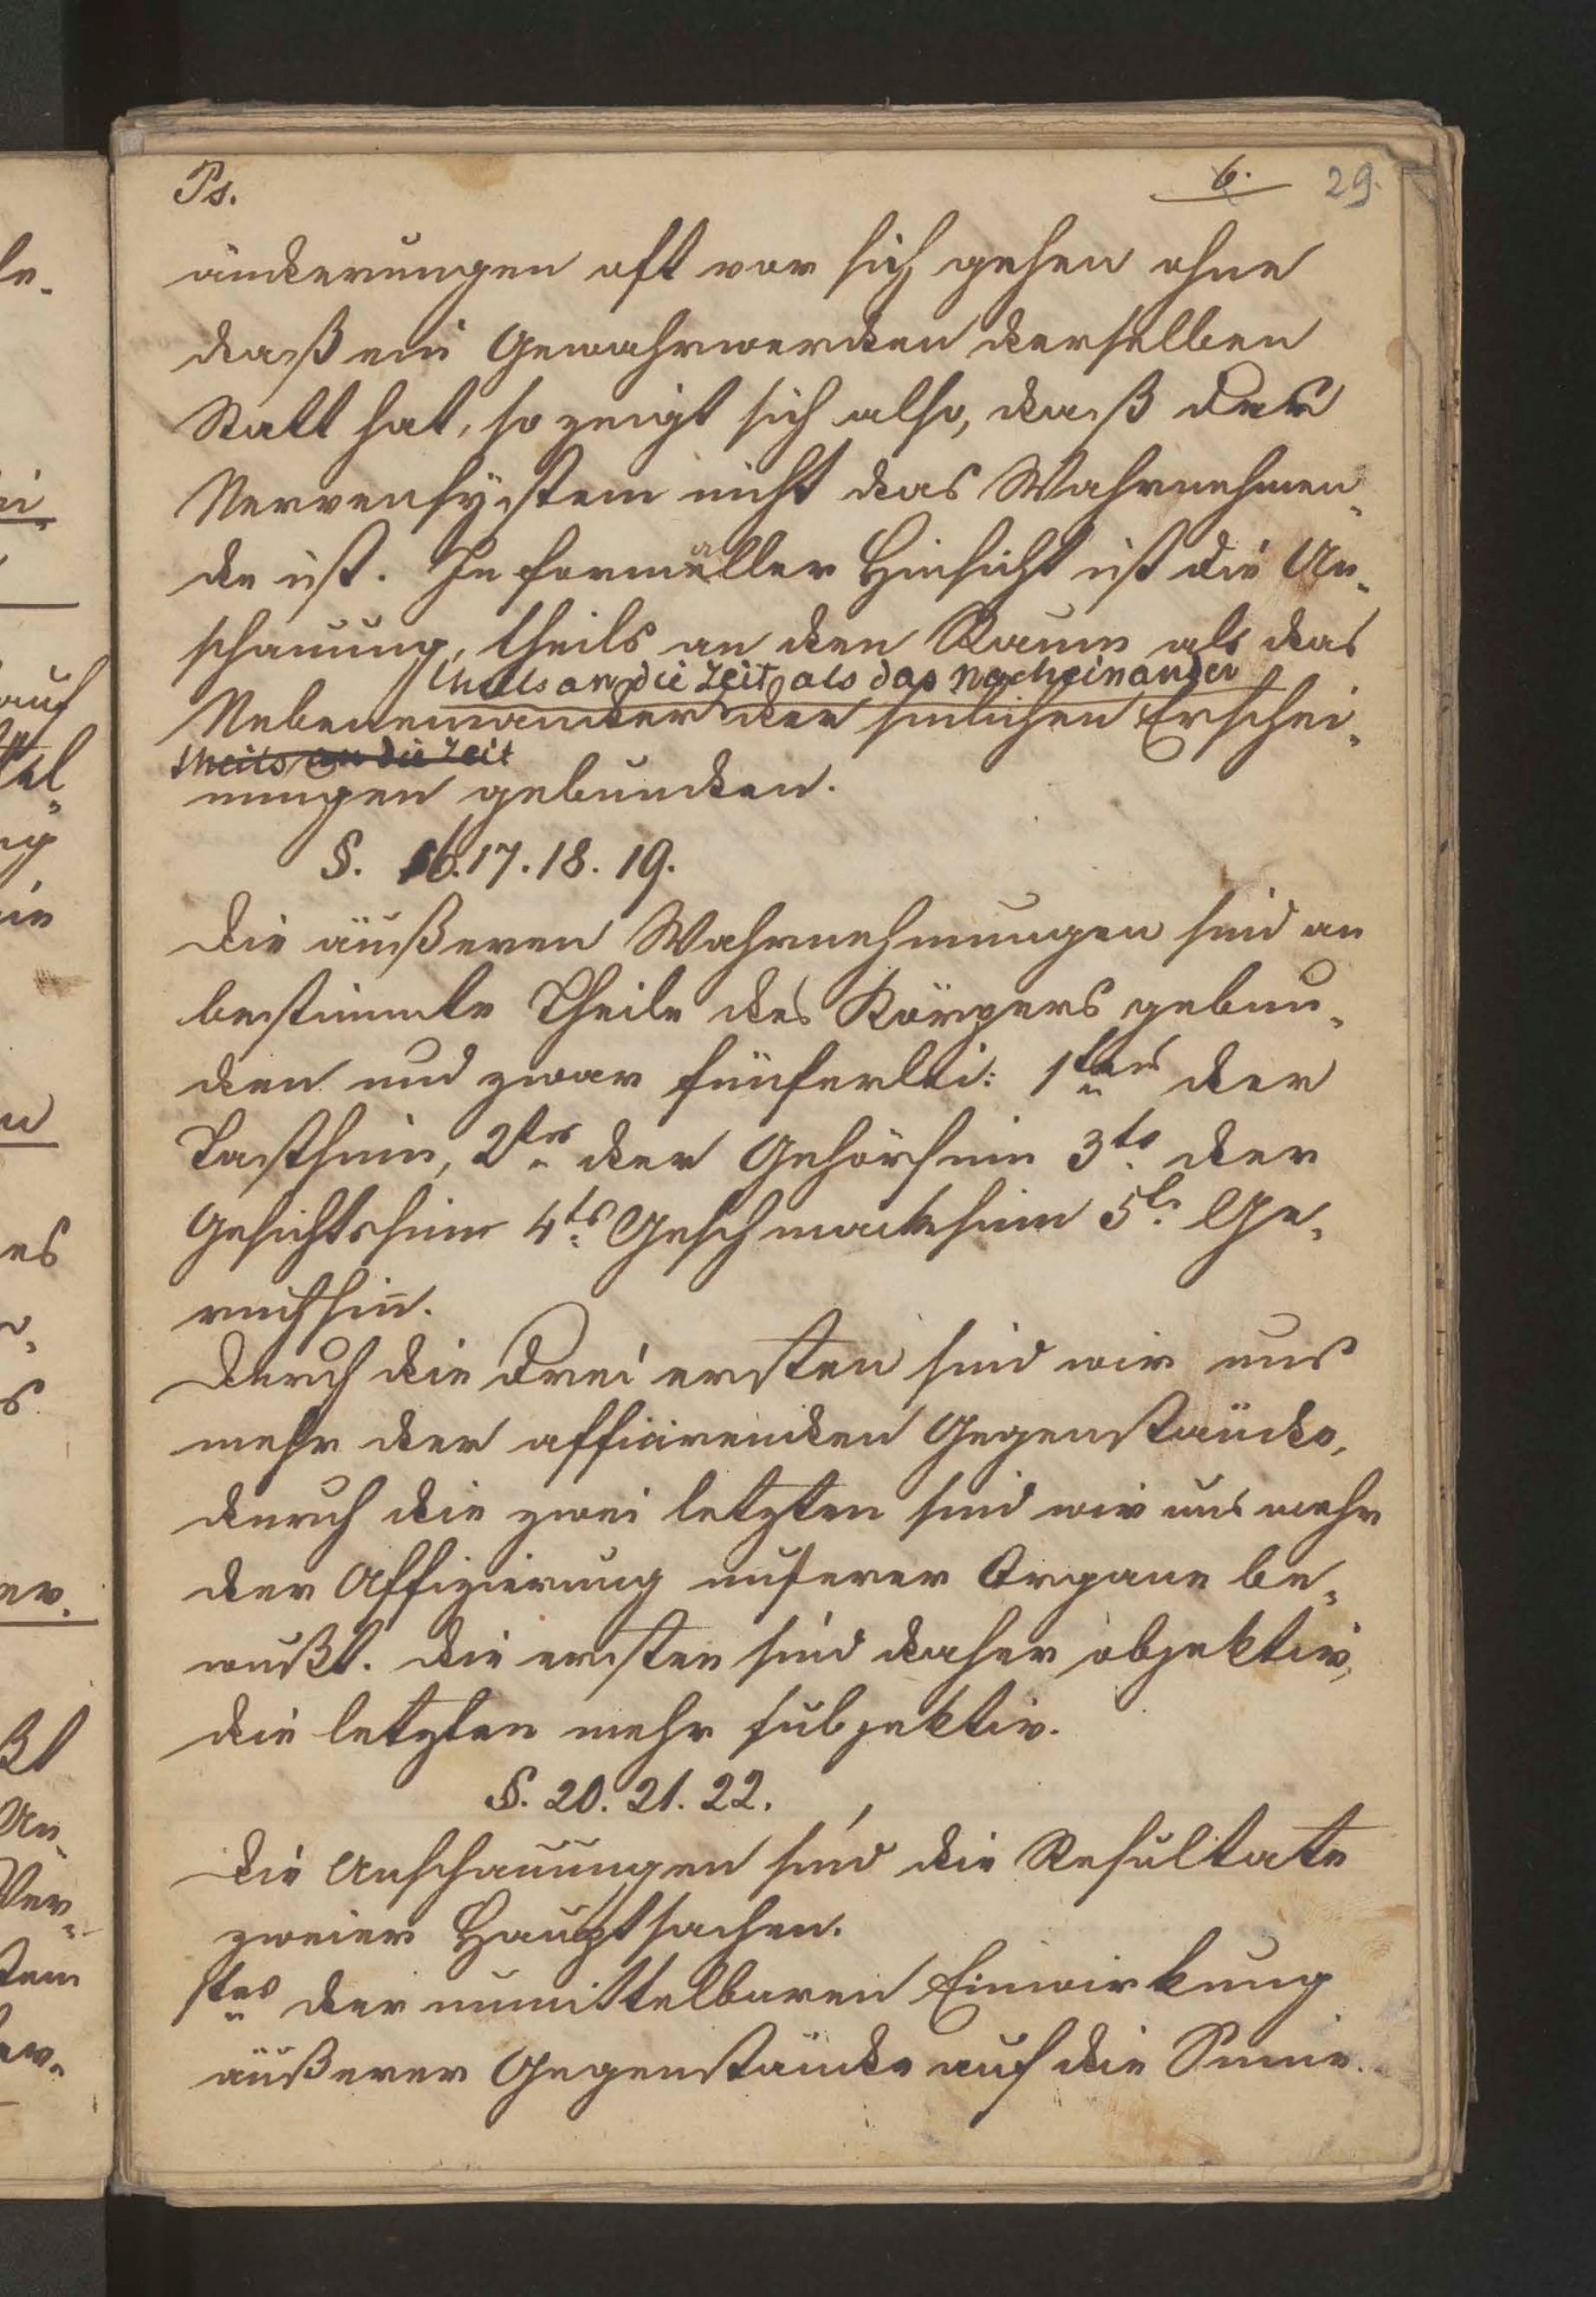 Ps.
6. 29.
änderungen oft vor sich gehen ohne
daß ein Gewahrwerden derselben
Statt hat, so zeigt sich also, daß das
Nervensystem nicht das Wahrnehmen-
de ist. In formaller Hinsicht ist die An-
schauung, theils an den Raum als das
theils an die Zeit als das Nacheinander
Nebeneinander der sinlichen Erschei-
theils an die Zeit
nungen gebunden.
§. 16. 17. 18. 19.
Die äußeren Wahrnehmungen sind an
bestimmte Theile des Körpers gebun-
den und zwar fünferlei: 1tens der
Tastsinn, 2tes der Gehörsinn 3ts der
Gesichtssinn 4ts Geschmacksinn 5ts Ge-
ruchsinn.
Durch die drei ersten sind wir uns
mehr der afficirenden Gegenstände,
durch die zwei letzten sind wir uns mehr
der Affizierung unserer Organe be-
wußt. Die ersten sind daher objektiv,
die letzten mehr subjektiv.
§. 20. 21. 22.
Die Anschauungen sind die Resultate
zweier Hauptsachen.
1tes der unmittelbaren Einwirkung
äußerer Gegenstände auf die Sinne.